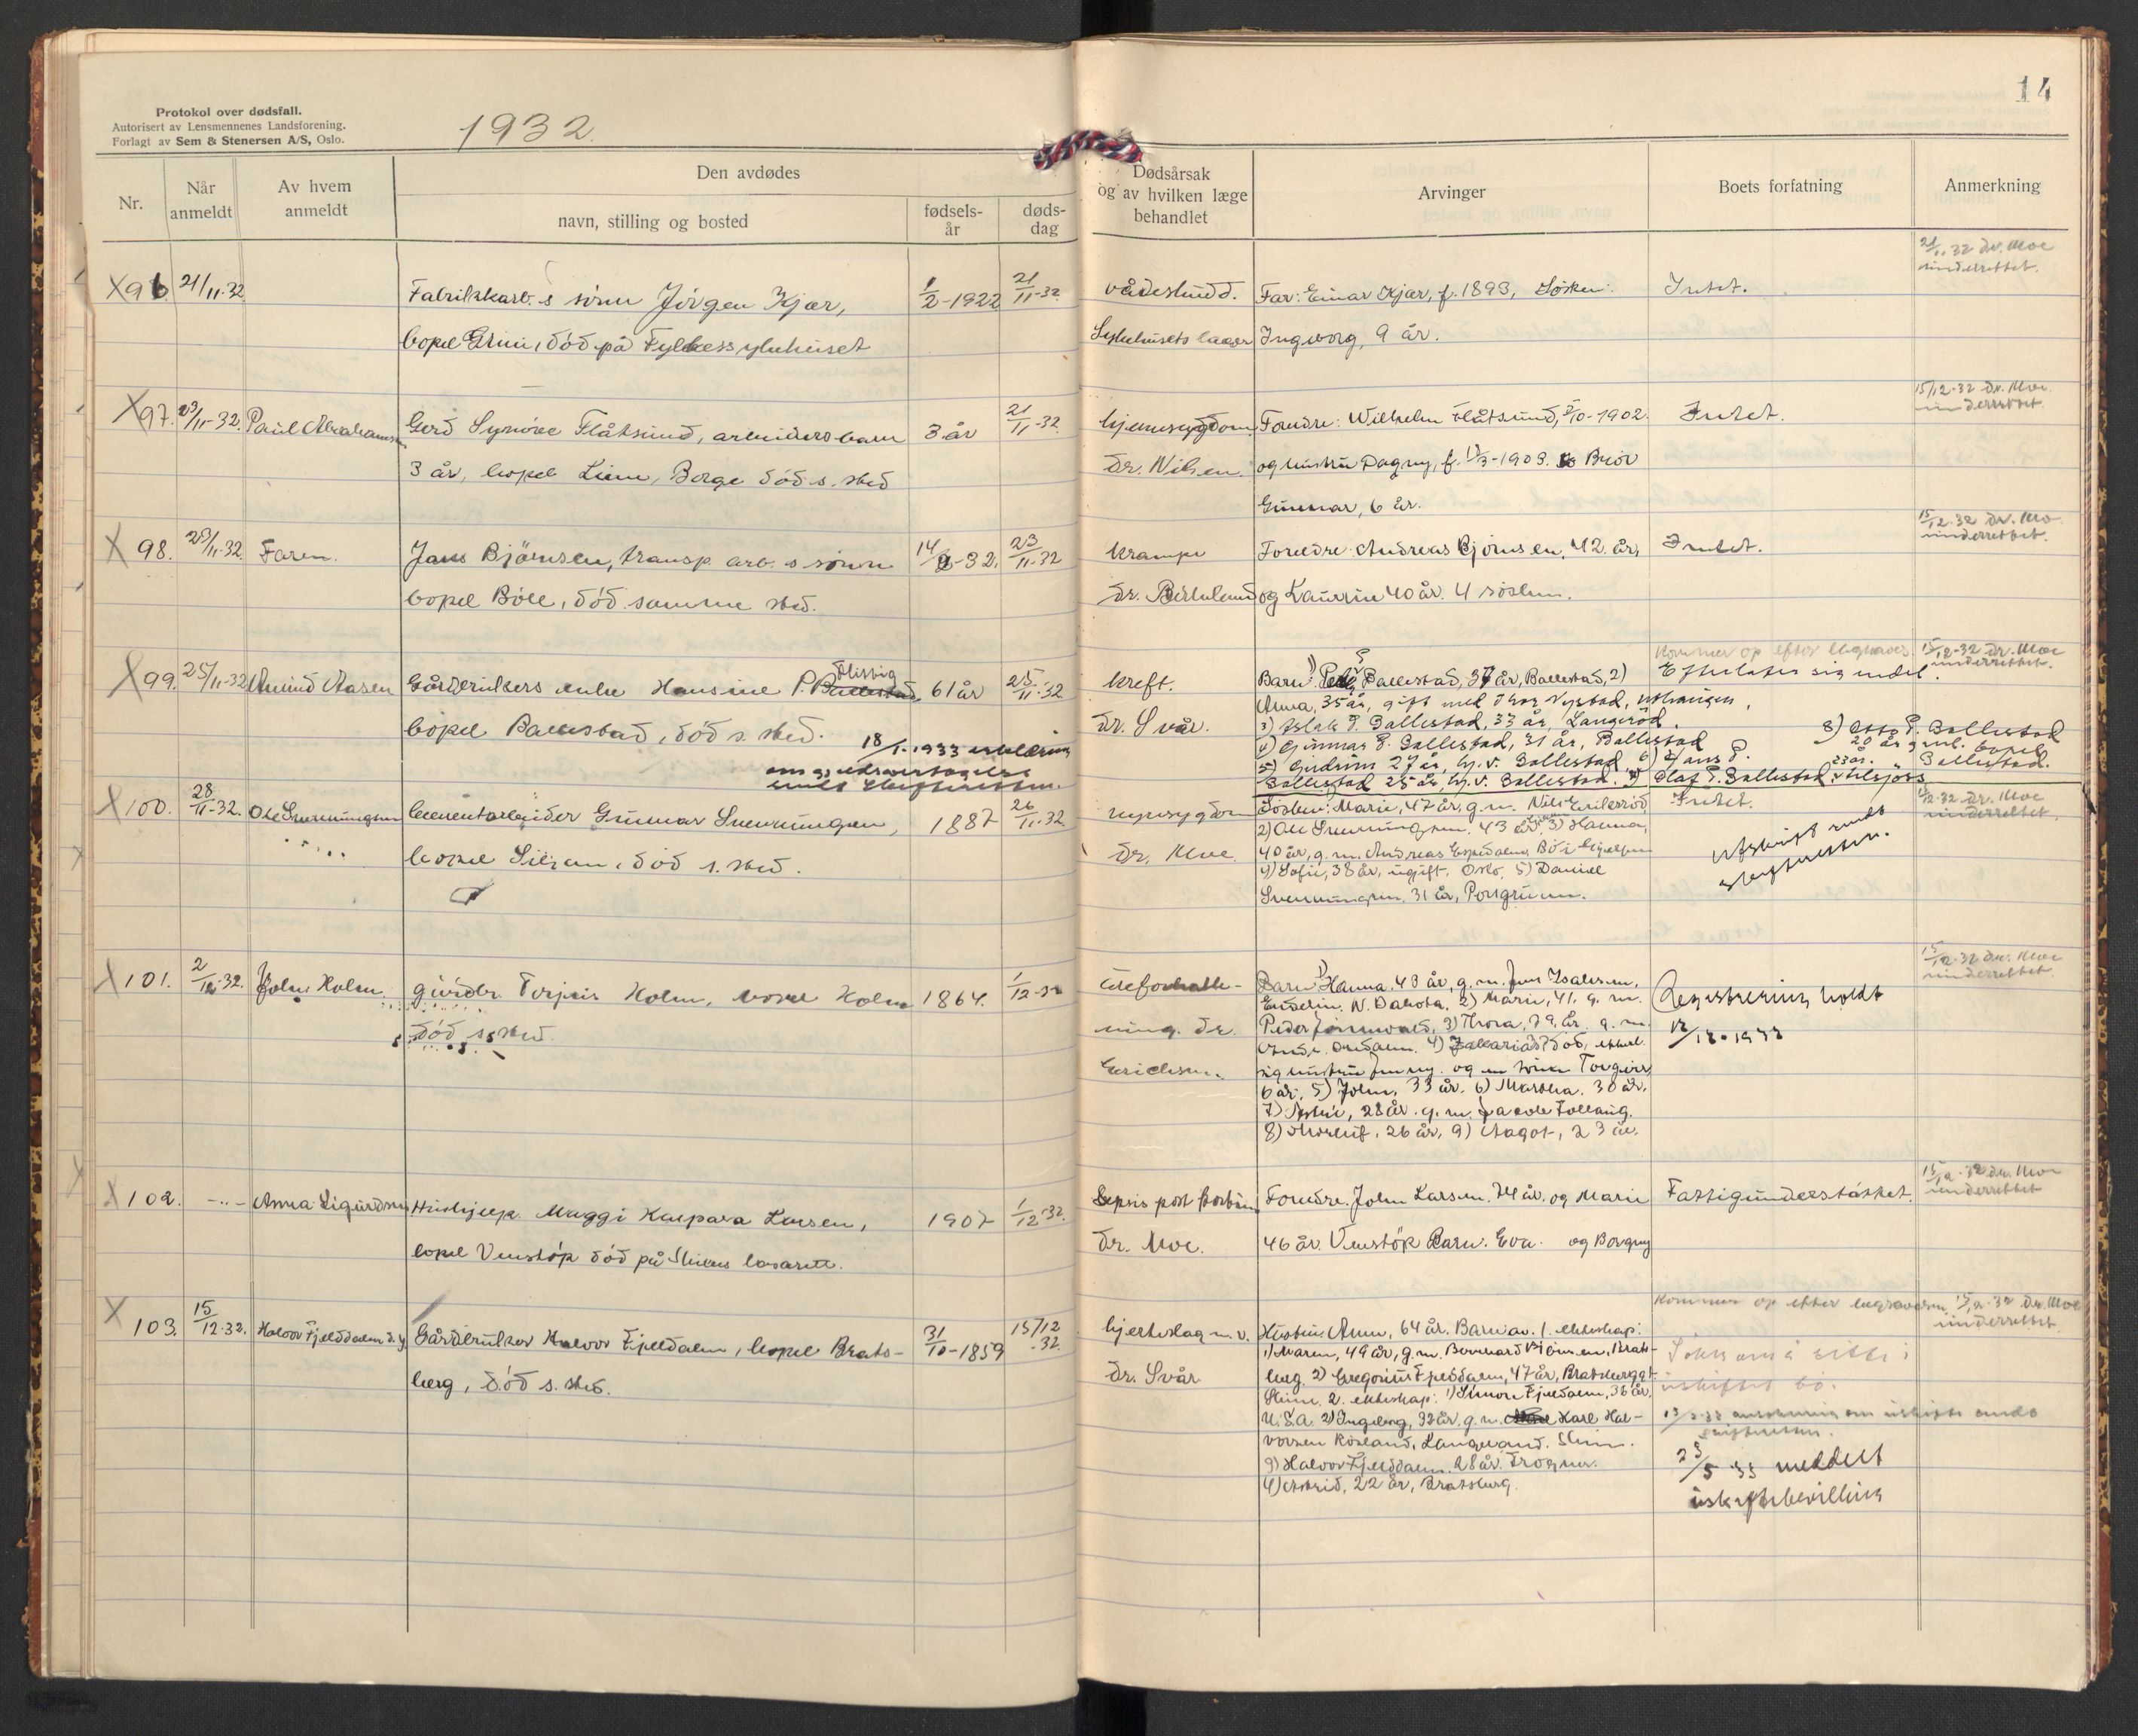 14
Protokol over dødsfall.
Autorisert av Lensmennenes Landsforening.
Forlagt av Sem & Stenersen A/S, Oslo.
1932.
Nr.
Når anmeldt
Av hvem anmeldt
Den avdødes
navn, stilling og bosted
fødsels-år
døds-dag
Dødsårsak og av hvilken læge behandlet
Arvinger
Boets forfatning
Anmerkning
X96 21/11-32 Fabrikkarb. s sönn Jörgen Kjær, 1/2-1922 21/11-32 vådeskudd. Far: Einar Kjær, f. 1893, Søsken: Intet. 21/11-32 Dr. Moe underrettet.
bopel Grini, död på Fylkessykehuset Sykehusets læger Ingeborg, 9 år.
X97. 23/11-32. Paul Abrahamsen Gerd Synöve Flåtsund, arbeidersbarn 3 år 21/11-32 hjernesygdom Foreldre: Wilhelm Flåtsund, 5/10-1902. Intet. 15/12-32 Dr. Moe underrettet.
3 år, bopel Lime, Borge död s. sted Dr. Nilsen. og hustru Dagny, f. 13/3-1903. Bror
Gunnar, 6 år.
X 98. 23/11-32. Faren. Jans Björnsen, transp. arb. s sönn 14/9-32. 23/11-32 Krampe Foreldre: Andreas Björnsen, 42 år, Intet. 15/12-32 Dr. Moe underrettet.
bopel Böle, död samme sted. dr. Bertelsen og Laurine 40 år. 4 söskn.
X99. 25/11-32 Amund Aasen Gårdbrukers enke Hansine P. Ballestad 61 år 25/11-32 Kreft. Barn: 1) Ballestad, 37 år, Ballestad, 2) Kommer op efter begravelse. Efterlater sig midel. 15/12-32 Dr. Moe underrettet.
bopel Ballestad, död s. sted. dr. Svår. Anna, 35 år, gift med Thor Nystad,
18/1-1933 erklæring om gjeldsovertagelse sendt skifteretten.
3) Aslak P. Ballestad, 33 år, Langeröd.
4) Gunnar P. Ballestad, 31 år, Ballestad 8) Otto P. Ballestad
5) Gudrun 27 år, hj. v. Ballestad 6) Hans P. 20 år gml. bopel Ballestad.
Ballestad 25 år, hj. v. Ballestad. 7) Olaf P. Ballestad 23 år.
X100. 28/11-32. Ole Svenningsen Cementarbeider Gunnar Svenningsen, 1887 26/11-32. nyresygdom Søsken: Marie, 47 år, g. m. Nils Intet. 15/12-32 Dr. Moe underrettet.
bopel Siljan, död s. sted. Dr. Moe. 2) Ole Svenningsen, 43 år, 3) Hanna,
40 år, g. m. Andreas
4) Sofie, 38 år, ugift, Oslo, 5) Daniel
Svenningsen, 31 år, Porsgrunn.
utskrift sendt skifteretten.
X101. 2/12-32. John Holm. gårdbr. Torjus Holm, bopel Holm 1864. 1/12-32 Barn 1) Hanna, 43 år, g. m. Jens Isaksen, Registrering holdt 15/12-32 Dr. Moe underrettet.
död s. sted. ning. dr. N. Dakota, 2) Marie, 41. g. m. 12/12-1932
Peder 3) Thora, 39 år. g. m.
4) Zakarias? död, efterl.
sig hustru Jenny. og en sönn Torgeir
6 år, 5) John, 33 år. 6) Martha. 30 år.
7) 28 år. g. m. Jacob
8) 26 år, 9) Aagot, 23 år.
X102. -"- Anna Sigurdsen Hushjelp. Maggi Kaspara Larsen, 1907 1/12-32. Sepsis post abortum Foreldre. John Larsen. 74 år. og Marie Fattigunderstøttet. 15/12-32 Dr. Moe underrettet
bopel Venstöp död på Skiens lasarett. Dr. Moe. 46 år. Venstöp Barn: Eva. og Borgny
X103. 15/12-32. Halvor Fjelddalen d.y. Gårdbruker Halvor Fjelddalen, bopel Brats- 31/10-1859 15/12-32. hjerteslag m. v. Hustru Anne, 64 år. Barn av 1. ekteskap: Kommer op efter begravelsen 15/12-32 Dr. Moe underrettet
berg, död s. sted. Dr. Svår 1) Maren, 49 år, g. m. Bernhard Björnsen, Brats-
berg 2) Gregorius Fjelddalen, 47 år, Bratsberggt.
Skien. 2. ekteskap: 1) Simon Fjelddalen, 36 år,
U.S.A. 2) Ingeborg, 32 år, g. m. Karl Hal-
vorsen Röseand, Langerand. Skien.
3) Halvor Fjelddalen. 28 år. Frogner.
4) Astrid, 22 år, Bratsberg.
Söker om å sitte i
uskiftet bo.
23/5 33 meddelt
uskiftebevilling